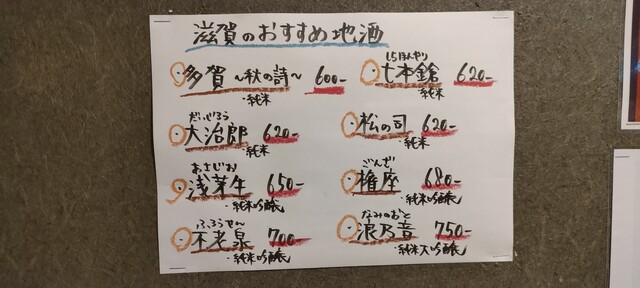 滋賀のおすすめ地酒
多賀 ～秋の詩～ 600-
・純米
だいじろう
大治郎 620-
・純米
あさぢお
浅茅生 650-
・純米吟醸
ふろうせん
不老泉 700-
・純米吟醸
しちほんやり
七本鎗 620-
・純米
松の司 620-
・純米
ごんざ
権座 680-
・純米吟醸
なみのおと
浪乃音 750-
・純米大吟醸